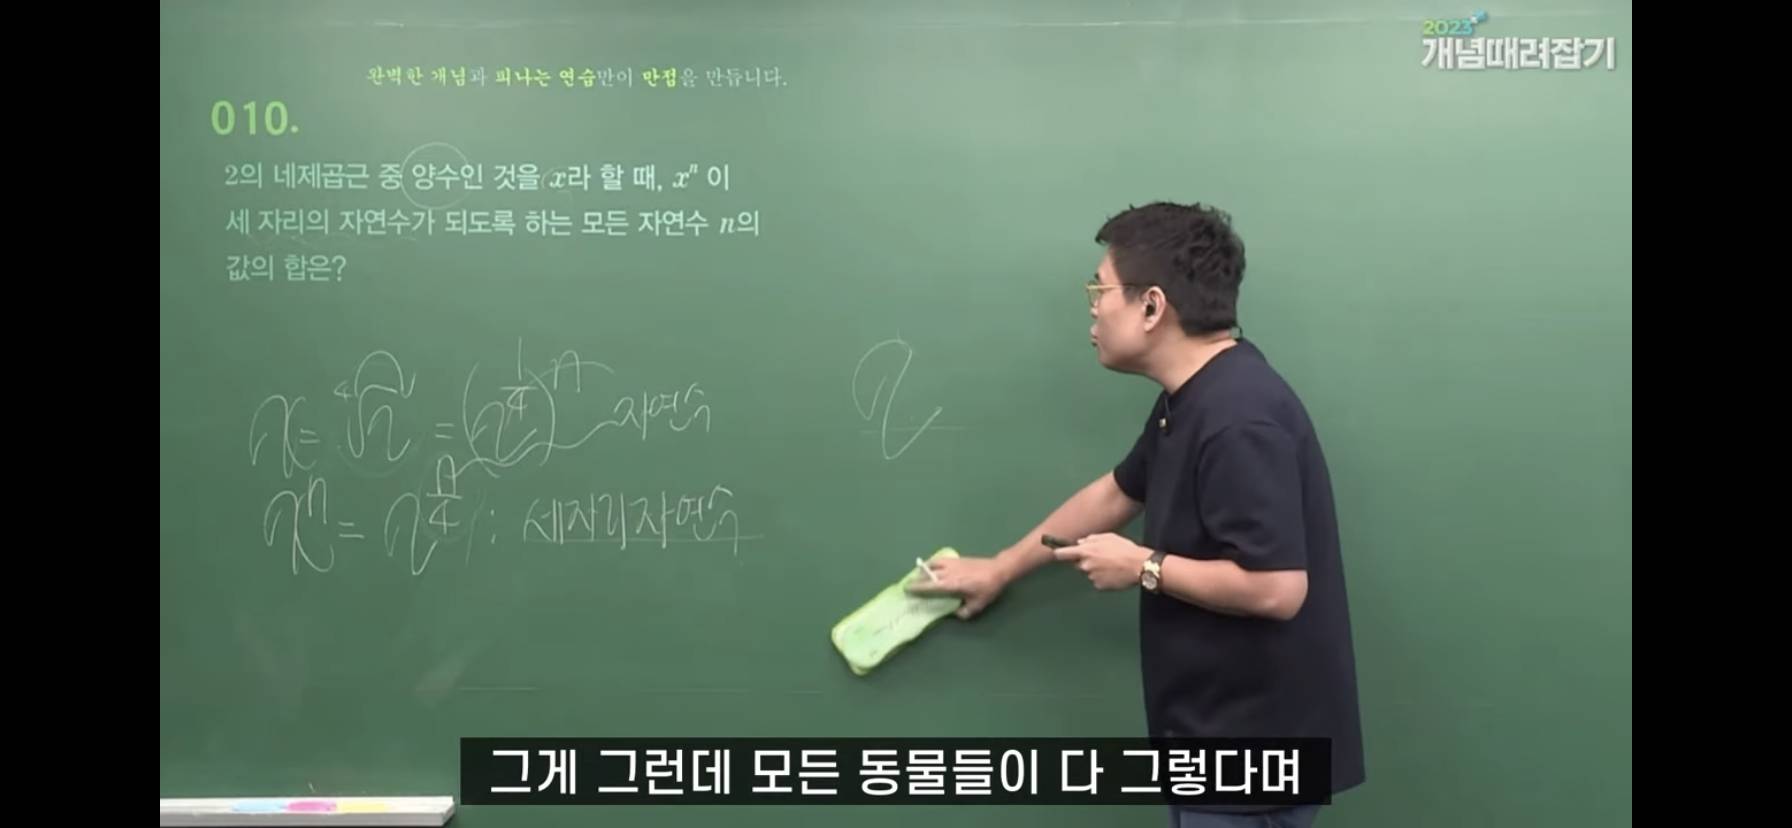 2023
개념때려잡기
완벽한 개념과 피나는 연습만이 만점을 만듭니다.
010.
2의 네제곱근 중 양수인 것을 x라 할 때, xⁿ 이
세 자리의 자연수가 되도록 하는 모든 자연수 n의
값의 합은?
x = ⁴√2 = (2^(1/4))ⁿ 자연수
xⁿ = 2^(n/4) : 세자리자연수
2
그게 그런데 모든 동물들이 다 그렇다며